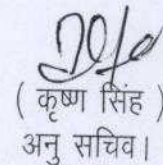 ( कृष्ण सिंह )
अनु सचिव।